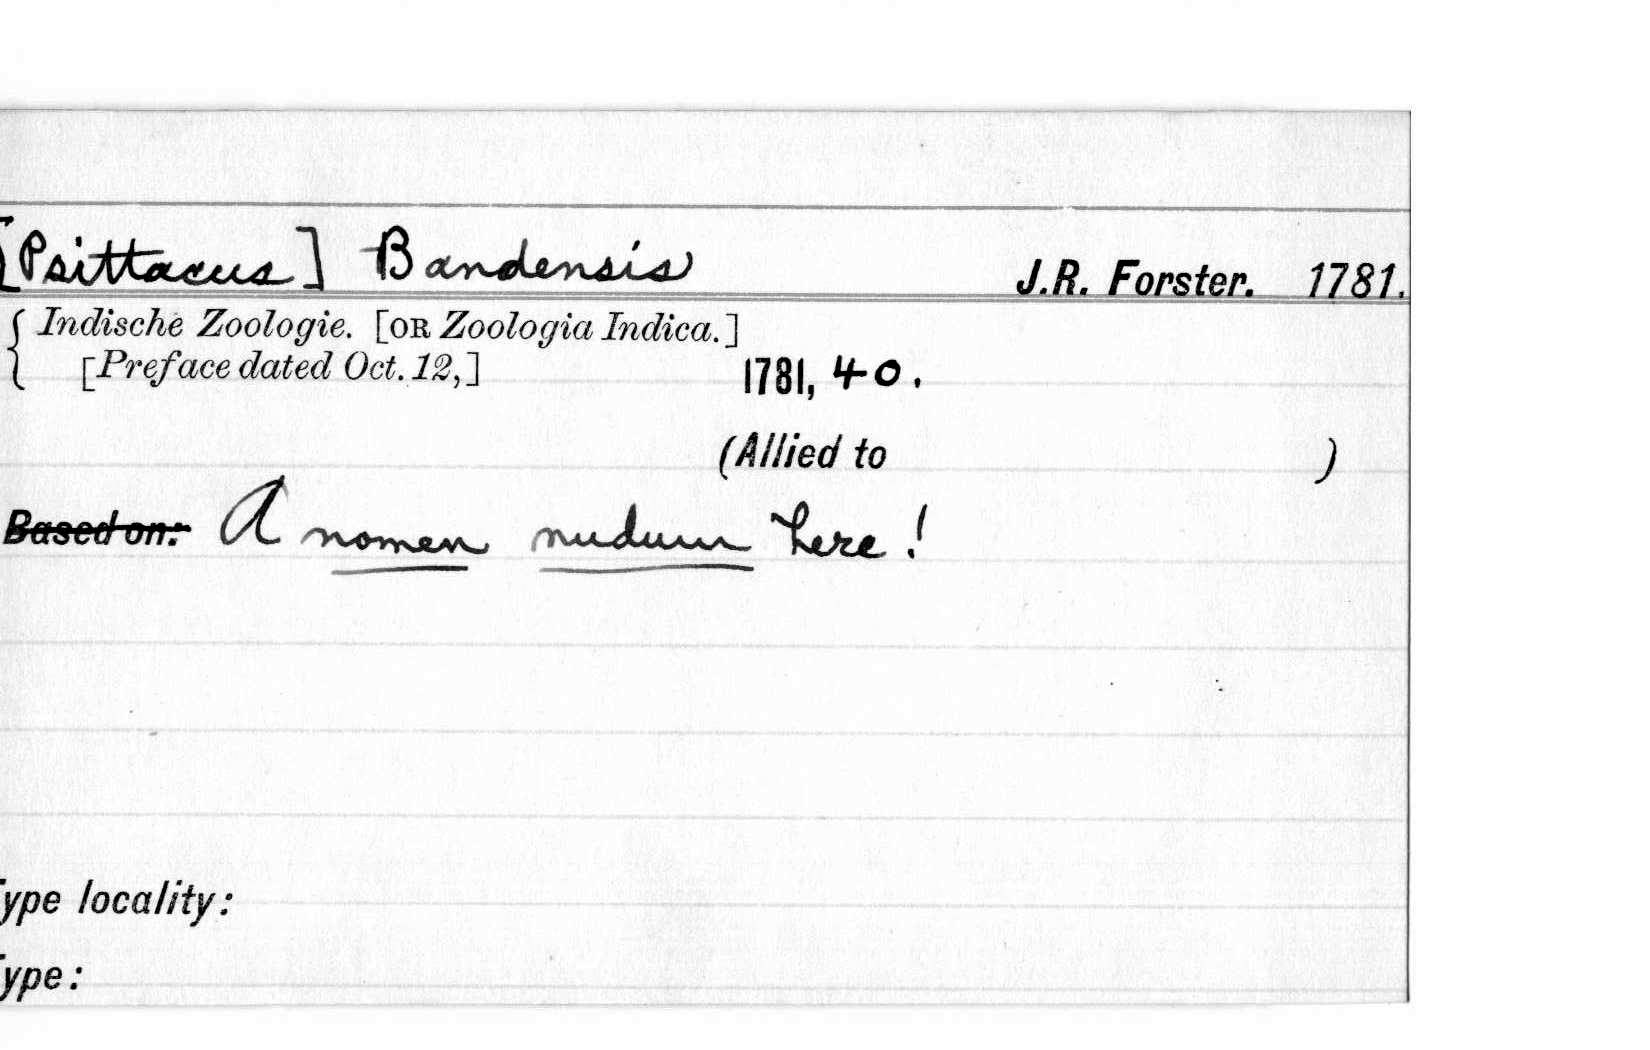 [Psittacus] Bandensis J.R. Forster. 1781.
Indische Zoologie. [OR Zoologia Indica.]
[Preface dated Oct. 12,] 1781, 40.
(Allied to )
Based on: A nomen nudum here!
ype locality:
ype: